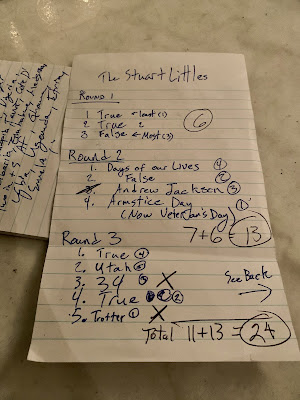 The Stuart Littles
Round 1
1 True ← least (1)
2 True 2
3 False ← Most (3)
6
Round 2
1. Days of our Lives 4
2 False 2
3. Andrew Jackson 3
4. Armstice Day 1
(Now Veteran's Day)
7+6 = 13
Round 3
1. True 4
2. Utah 5
3. 34 3 X
4. True 2
5. Trotter 1 X
See Back →
Total 11+13 = 24